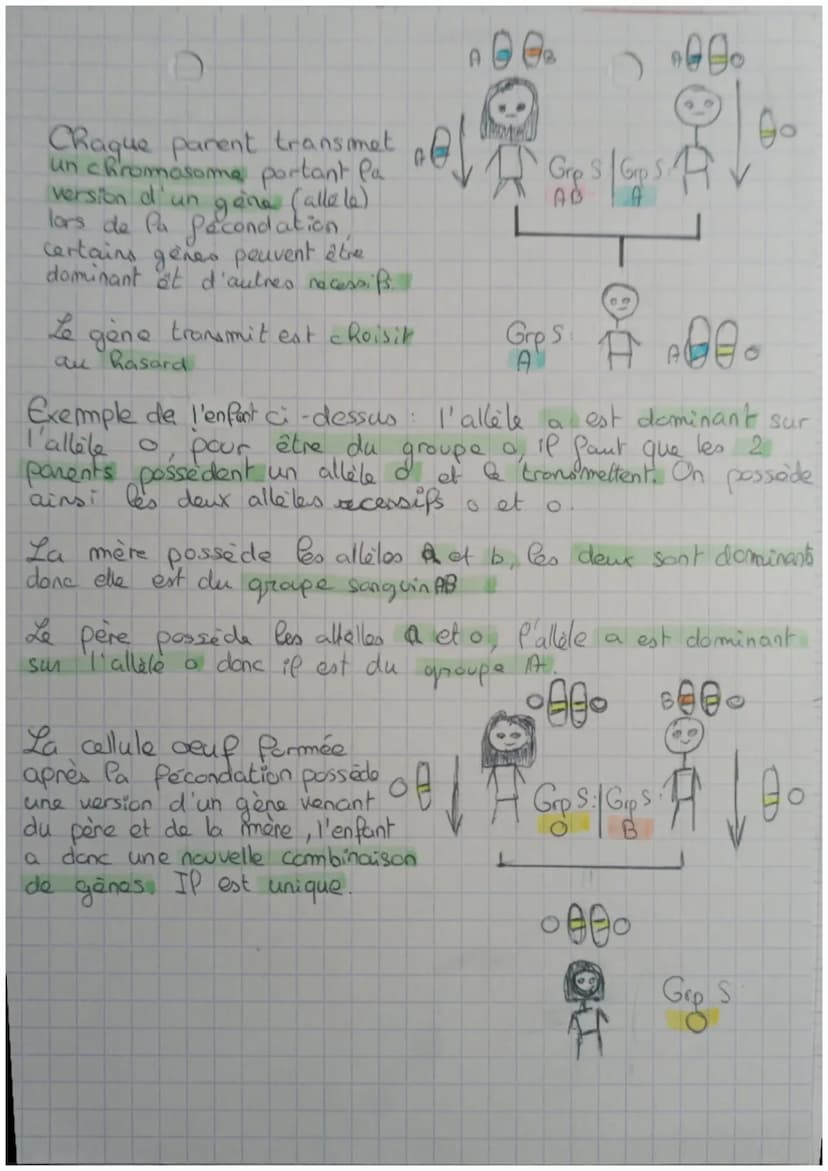 A B A O
Chaque parent transmet
un chromosome portant la
version d'un gène (allele)
lors de la fécondation,
certains gènes peuvent être
dominant et d'autres recessifs.
A
O
Grp S Grp S.
AB A
Le gène transmit est choisir
au hasard
Grp S.
A
A O
Exemple de l'enfant ci-dessus : l'allèle a est dominant sur
l'allèle o, pour être du groupe o, il faut que les 2
parents possèdent un allèle o et le transmettent. On possède
ainsi les deux allèles recessifs o et o.
La mère possède les allèles A et b, les deux sont dominant
donc elle est du groupe sanguin AB
Le père possède les allelles a et o, l'allèle a est dominant
sur l'allèle o donc il est du groupe A.
O O B O
La cellule oeuf formée
après la fécondation possède
une version d'un gène venant
du père et de la mère, l'enfant
a donc une nouvelle combinaison
de gènes. Il est unique.
O
O
Grp S: Grp S:
O B
O O
Grp S:
O